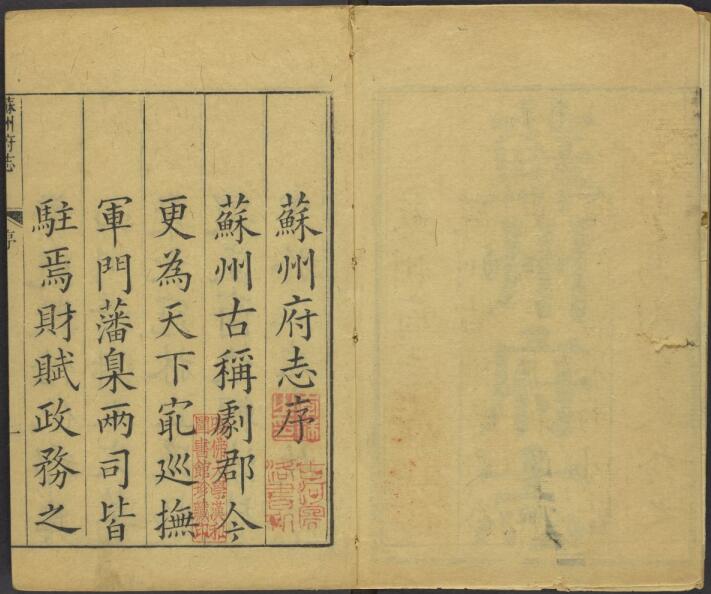 蘇州府志序
蘇州古稱劇郡今
更為天下冣巡撫
軍門藩臬两司皆
駐焉財賦政務之
蘇州府志
序
一